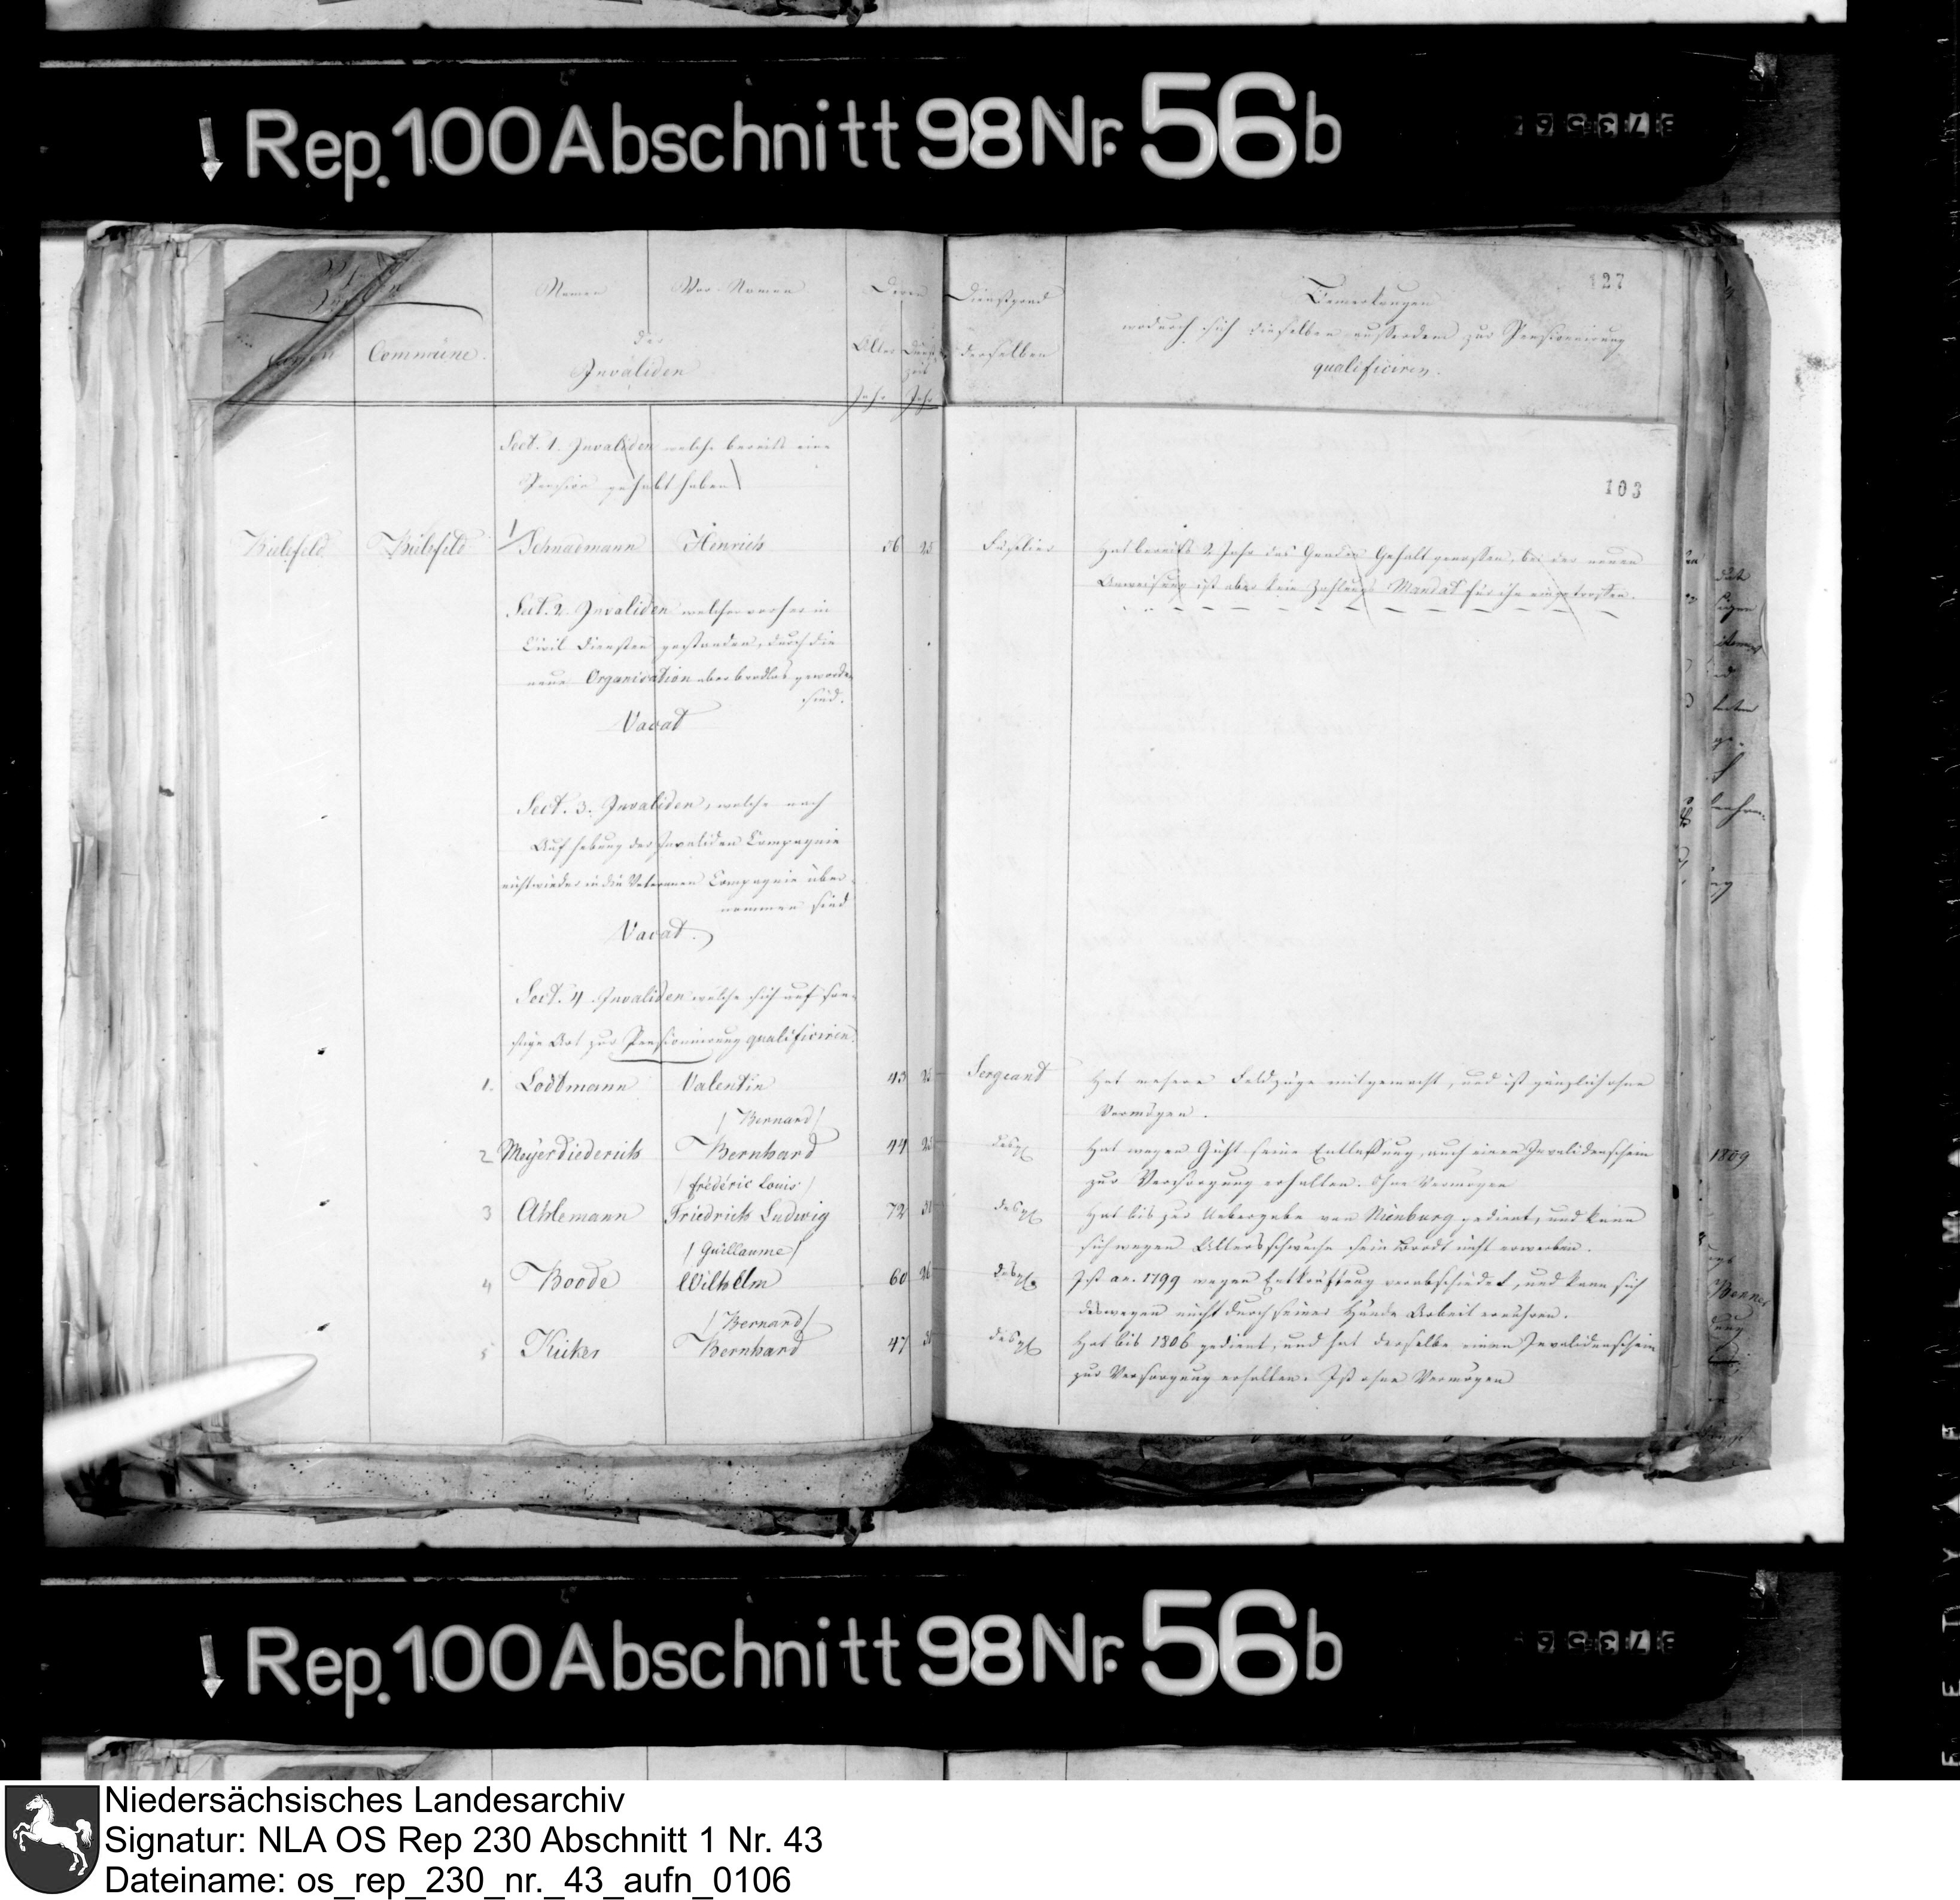 Rep. 100 Abschnitt 98 Nr. 56b
127
Namen Vor-Namen Deren Dienstgrad Bemerkungen
wodurch sich dieselben ausserdem zur Pensionirung
Commüne. der Alter Dienst derselben
Invaliden zeit qualificiren.
Jahr Jahr
Sect. 1. Invaliden welche bereits eine
Pension gehabt haben
103
Bielefeld Bielefeld 1 Schnadmann Hinrich 56 25 Fuselier Hat bereits 2 Jahr das Gnaden Gehalt genossen, bei der neuen
Anweisung ist aber kein Zahlungs Mandat für ihn eingetroffen.
Sect. 2. Invaliden welche vorher in
Civil Diensten gestanden, durch die
neue Organisation aber brodlos geworden
sind.
Vacat
Sect. 3. Invaliden, welche nach
Aufhebung der Invaliden Compagnie
nicht wieder in die Veteranen Compagnie über-
nommen sind
Vacat.
Sect. 4 Invaliden welche sich auf son-
stige Art zur Pensionirung qualificiren.
1. Lodtmann Valentin 43 Sergeant Hat mehrere Feldzüge mitgemacht, und ist gänzlich ohne
Vermögen.
/Bernard/
2 Meyerdiederich Bernhard 44 25 desgl. Hat wegen Gicht seine Entlassung, auch einen Invalidenschein
zur Versorgung erhalten. Ohne Vermögen
/frédéric Louis/
3 Ahlemann Friedrich Ludwig 72 desgl. Hat bis zur Uebergabe von Nienburg gedient, und kann
sich wegen Altersschwäche sein Brodt nicht erwerben.
/Guillaume/
4 Boode Wilhelm 60 26 desgl. Ist an. 1799 wegen Entkräftung verabschiedet, und kann sich
deswegen nicht durch seiner Hände Arbeit ernähren.
/Bernard/
5 Küker Bernhard 47 desgl. Hat bis 1806 gedient, und hat derselbe einen Invalidenschein
zur Versorgung erhalten. Ist ohne Vermögen
1809
Rep. 100 Abschnitt 98 Nr. 56b
Niedersächsisches Landesarchiv
Signatur: NLA OS Rep 230 Abschnitt 1 Nr. 43
Dateiname: os_rep_230_nr._43_aufn_0106